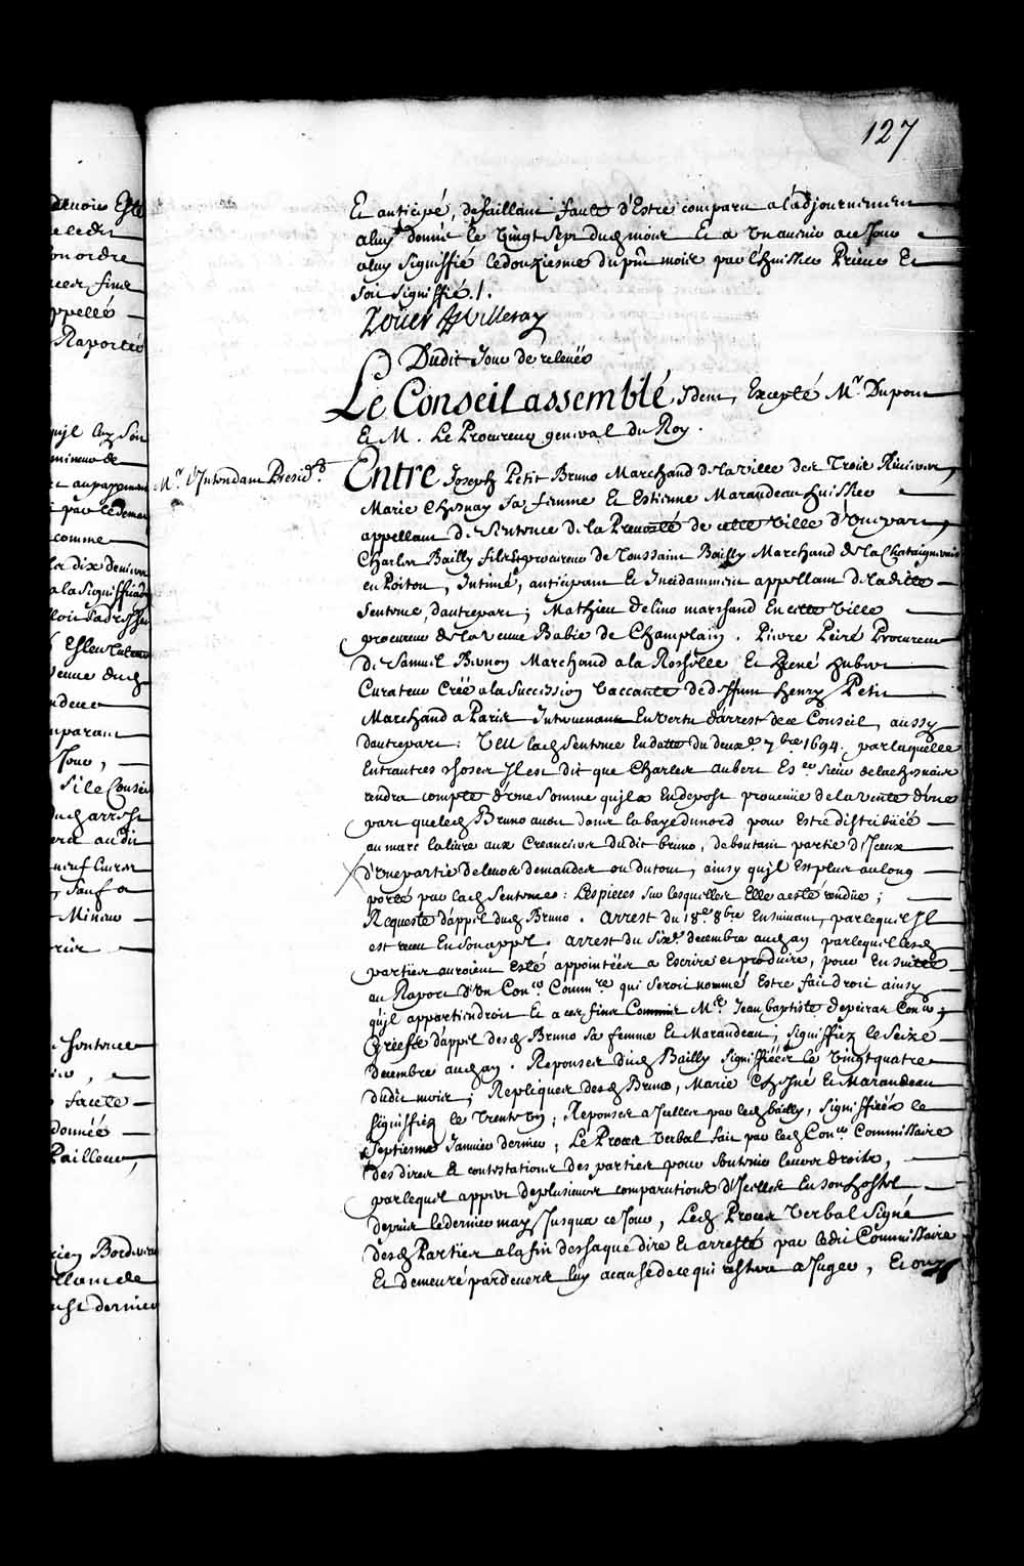 127
Et anticipé, defaillant faute d'Estre comparu a l'adjournement
a luy donné le vingt sept dud mois Et a un avenir a ce Jour
a luy signiffié le douziesme du pnt mois par l'huissier Prieur Et
soit signiffié ./.
Roüer de Villeray
Dudit Jour de relevée
Le Conseil assemblé, Idem, Excepté Mr. Dupont
Et M. Le Procureur general du Roy.
Mr. l'Intendant Presidt.
Entre Joseph Petit Bruno Marchand de la ville des Trois Rivieres,
Marie Chesnay sa femme Et Estienne Marandeau huissier
appellans de Sentence de la Prevosté de cette Ville d'une part,
Charles Bailly fils Et procureur de Toussaint Bailly Marchand de la Chataigneraie
en Poitou, Intimé, anticipant Et Incidamment appellant de ladite
Sentence, d'autre part; Mathieu Delino marchand En cette Ville
procureur de la Veuve Babie de Champlain. Pierre Peiré Procureur
de Samuel Bernon Marchand a la Rochelle Et René hubert
Curateur Créé a la Succession vaccante de deffunt henry Petit
Marchand a Paris Intervenants En vertu d'arrest de ce Conseil, aussy
d'autre part: Veu lad Sentence En datte du deuxe. 7bre 1694. par laquelle
Entr'autres choses Il est dit que Charles aubert Eser. sieur de la chesnaie
rendra compte d'une somme qu'il a En depost provenüe de la vente d'une
part que led Bruno avoit dans la baye du nord pour Estre distribüée
au marc la livre aux Creanciers dudit bruno, deboutant partie d'Iceux
d'une partie de leurs demandes ou du tout, ainsy qu'il Est plus au long
porté par lad Sentence: Les pieces sur lesquelles Elle a esté rendüe;
Requeste d'appel dud Bruno. Arrest du 18e. 8bre Ensuivant, par lequel Il
est receu En son appel. Arrest du Sixe. decembre aud an par lequel lesd
parties auroient Esté appointées a Escrire et produire, pour Ensuitte
au Raport d'un Coner. Commre qui seroit nommé Estre fait droit ainsy
qu'il appartiendroit Et a ces fins Commis Me. Jean baptiste depeiras Coner;
Griefs d'appel desd Bruno sa femme Et Marandeau; signiffiez le seize
decembre aud an. Reponses dud Bailly signiffiées le vingt quatre
dudit mois; Repliques desd Bruno, Marie Chesné Et Marandeau
signiffiez le trente un; Reponses a Icelles par led bailly, signiffiées le
septiesme Janvier dernier; Le Procez Verbal fait par led Coner Commissaire
des dires Et contestations des parties pour soutenir leurs droits,
par lequel appert de plusieurs comparutions d'Icelles En son hostel
depuis le dernier may Jusqu'a ce Jour, Led Procez Verbal Signé
desd Parties a la fin de chaque dire Et arresté par ledit Commissaire
Et demeuré pardevers luy a cause de ce qui restera a Juger, Et ouy